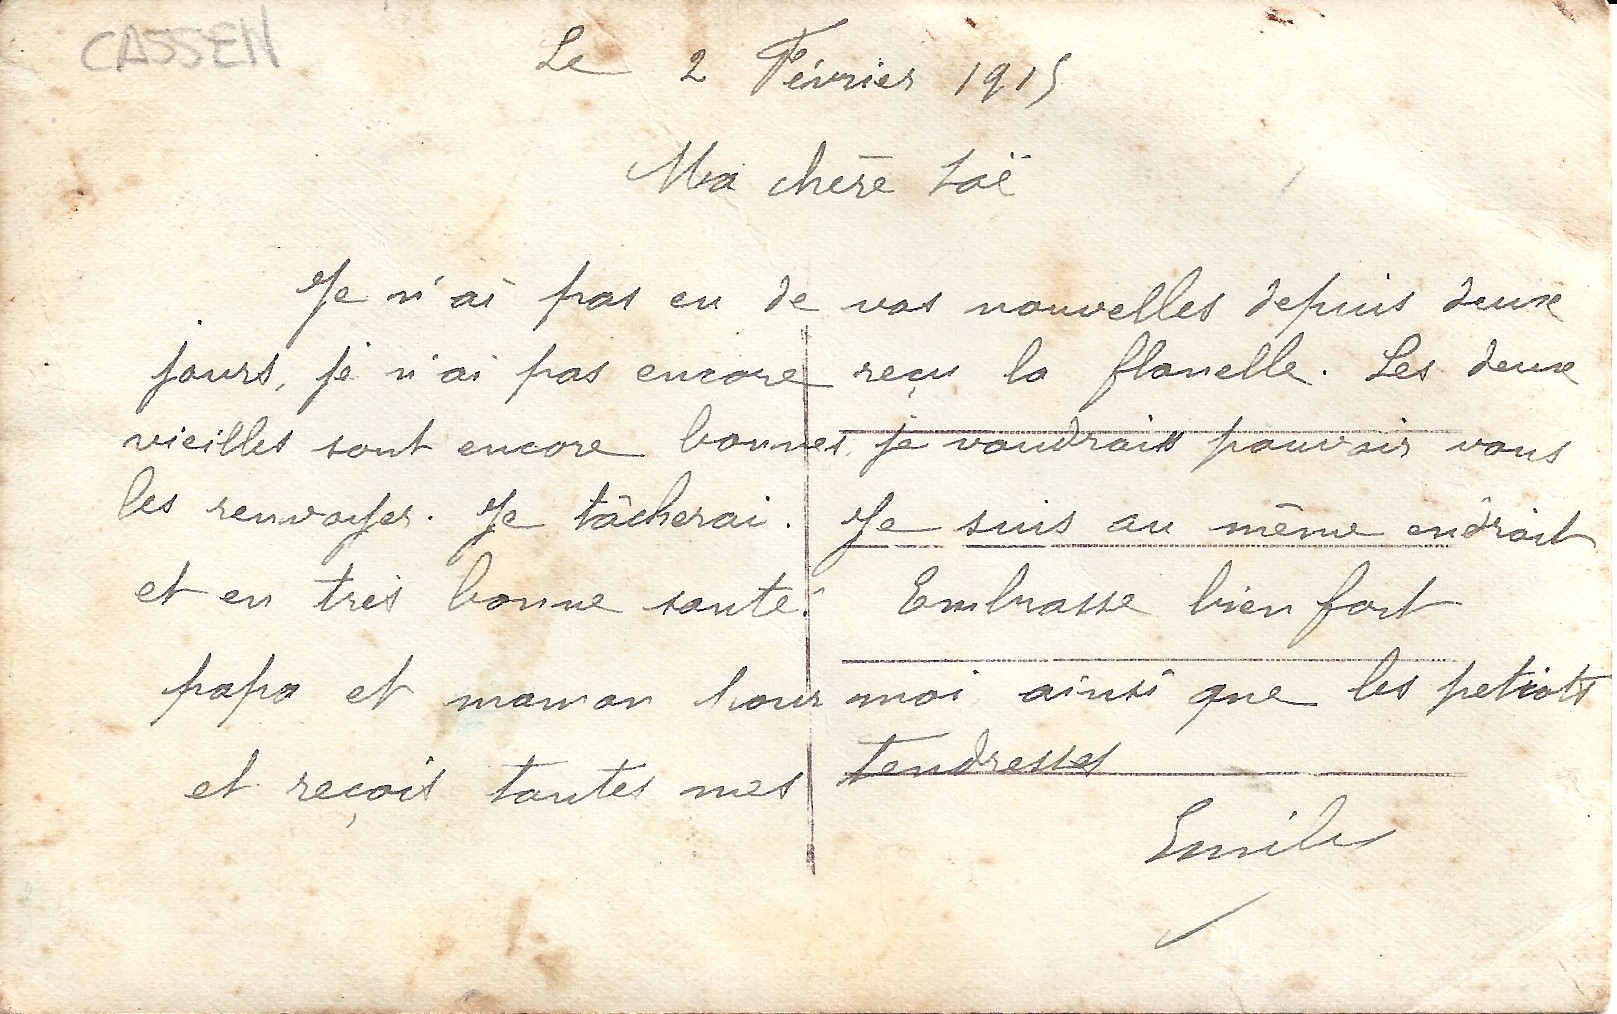 CASSEN
Le 2 Février 1915
Ma chère Zoë
Je n'ai pas eu de vos nouvelles depuis deux
jours, je n'ai pas encore reçu la flanelle. Les deux
vieilles sont encore bonnes, je voudrais pouvoir vous
les renvoyer. Je tâcherai. Je suis au même endroit
et en très bonne santé. Embrasse bien fort
papa et maman pour moi ainsi que les petiots
et reçois toutes mes tendresses
Emile